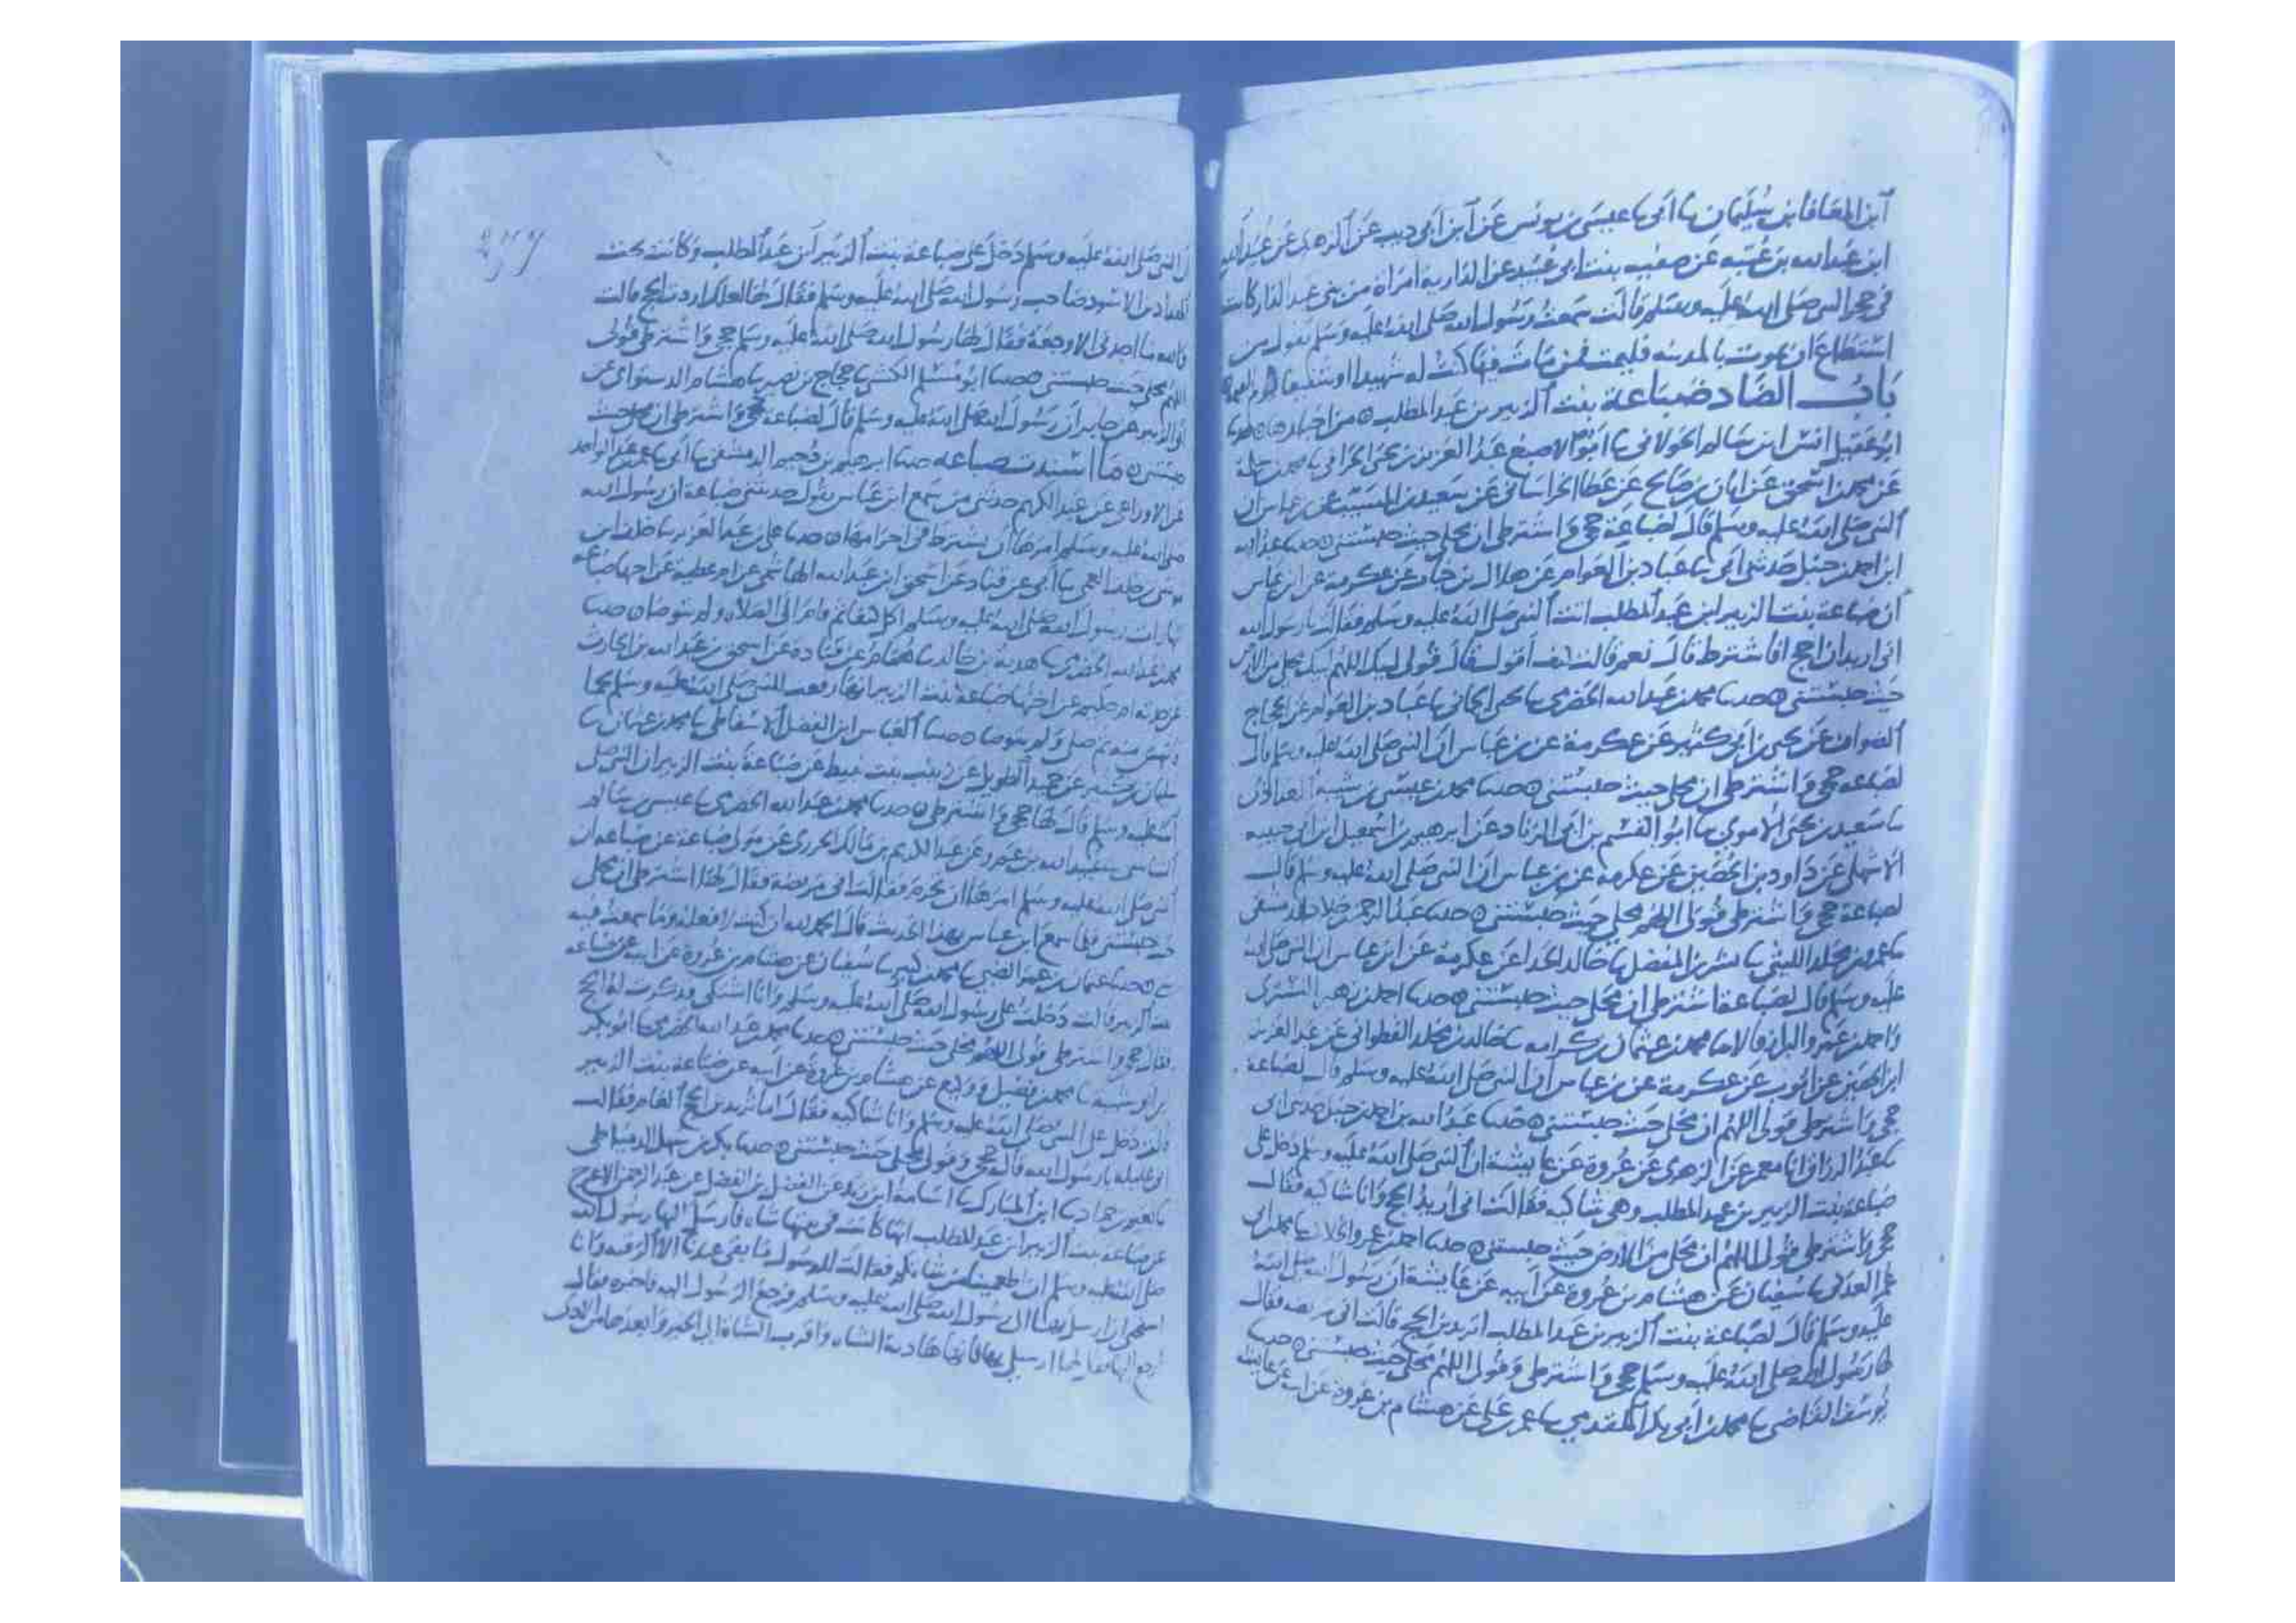 ابن المعافا بن سليمان نا أبي نا عيسى بن يونس عن ابن أبي ديب عن الزهري عن عبيد الله
ابن عبد الله بن عتبه عن صفيه بنت ابي عبيد عن الداريه امراة من بني عبد الدار كانت
في حجر النبي صلى الله عليه وسلم قالت سمعت رسول الله صلى الله عليه وسلم يقول من
استطاع ان يموت بالمدينه فليمت فمن مات فيها كنت له شهيدا او شفيعا يوم القيمة
باب الضاد ضباعة بنت الزبير بن عبد المطلب من اخبارها حدثنا
ابو عقيل انس ابن سالم الخولاني نا ابو الاصبغ عبد العزيز بن يحيى الحراني نا محمد بن سلمة
عن محمد بن اسحق عن ابان بن صالح عن عطا الخراساني عن سعيد بن المسيب عن بن عباس ان
النبي صلى الله عليه وسلم قال لضباعة حجي واشترطي ان محلي حيث حبستني حدثنا عبد الله
ابن احمد بن حنبل حدثني ابي نا عباد بن العوام عن هلال بن خباب عن عكرمة عن ابن عباس
ان ضباعة بنت الزبير ابن عبد المطلب اتت النبي صلى الله عليه وسلم فقالت يا رسول الله
اني اريد ان احج افاشترط قال نعم قالت كيف اقول قال قولي لبيك اللهم لبيك محلي من الارض
حيث حبستني حدثنا محمد بن عبد الله الحضرمي نا يحيى الحماني نا عباد بن العوام عن الحجاج
الصواف عن يحيى بن ابي كثير عن عكرمة عن بن عباس ان النبي صلى الله عليه وسلم قال
لضباعه حجي واشترطي ان محلي حيث حبستني حدثنا محمد بن عيسى بن شيبة
نا سعيد بن يحيى الاموي نا ابو القسم بن ابي الزناد عن ابرهيم بن اسمعيل ابن ابي حبيبه
الاشهلي عن داود بن الحصين عن عكرمة عن بن عباس ان النبي صلى الله عليه وسلم قال
لضباعة حجي واشترطي قولي اللهم محلي حيث حبستني حدثنا
نا عمرو بن مخلد الليثي نا بشر بن المفضل نا خالد الحذا عن عكرمة عن ابن عباس ان النبي صلى الله
عليه وسلم قال لضباعة اشترطي ان محلي حيث حبستني حدثنا احمد بن زهير التستري
واحمد بن عمرو البزار قالا نا محمد بن عثمان بن كرامه نا خالد بن مخلد القطواني عن عبد العزيز
ابن الحصين عن ايوب عن عكرمة عن بن عباس ان النبي صلى الله عليه وسلم قال لضباعة
حجي واشترطي قولي اللهم ان محلي حيث حبستني حدثنا عبد الله بن احمد بن حنبل حدثني ابي
نا عبد الرزاق انا معمر عن الزهري عن عروة عن عايشة ان النبي صلى الله عليه وسلم دخل على
ضباعة بنت الزبير بن عبد المطلب وهي شاكيه فقالت اني اريد الحج وانا شاكيه فقال
حجي واشترطي قولي اللهم ان محلي من الارض حيث حبستني حدثنا احمد بن عمرو الخلال نا محمد بن ابي
عمر العدني نا سفيان عن هشام بن عروة عن ابيه عن عايشة ان رسول الله صلى الله
عليه وسلم قال لضباعة بنت الزبير بن عبد المطلب اتريدين الحج قالت اني مريضه فقال
لها رسول الله صلى الله عليه وسلم حجي واشترطي وقولي اللهم محلي حيث حبستني حدثنا
يوسف القاضي نا محمد بن ابي بكر المقدمي نا عمر بن علي عن هشام بن عروة عن ابيه عن عايشه
ان النبي صلى الله عليه وسلم دخل على ضباعة بنت الزبير ابن عبد المطلب وكانت تحت
المقداد بن الاسود صاحب رسول الله صلى الله عليه وسلم فقال لها لعلك اردت الحج قالت
والله ما اجدني الا وجعة فقال لها رسول الله صلى الله عليه وسلم حجي واشترطي قولي
اللهم محلي حيث حبستني حدثنا ابو مسلم الكشي نا حجاج بن نصير نا هشام الدستوائي عن
ابو الزبير عن جابر ان رسول الله صلى الله عليه وسلم قال لضباعة حجي واشترطي ان محلي حيث
حبستني ما اسندت ضباعه حدثنا ابرهيم بن دحيم الدمشقي نا أبي نا عمر بن عبد الواحد
عن الاوزاعي عن عبد الكريم حدثني من سمع ابن عباس يقول حدثتني ضباعة ان رسول الله
صلى الله عليه وسلم امرها ان تشترط في احرامها حدثنا علي بن عبد العزيز نا خلف ابن
موسى بن خلف العمي نا أبي عن قتادة عن اسحق ابن عبد الله الهاشمي عن ام عطية عن اختها ضباعة
انها رات رسول الله صلى الله عليه وسلم اكل كتفا ثم قام الى الصلاه ولم يتوضا حدثنا
محمد بن عبد الله الحضرمي نا هدبة بن خالد نا همام عن قتادة عن اسحق بن عبد الله بن الحارث
عن جدته ام حكيم عن اختها ضباعة بنت الزبير انها دفعت للنبي صلى الله عليه وسلم لحما
فانتهس منه ثم صلى ولم يتوضا حدثنا العباس ابن الفضل الاسفاطي نا محمد بن عثمان نا
سليمان بن كثير عن حميد الطويل عن زينب بنت نبيط عن ضباعة بنت الزبير ان النبي صلى
الله عليه وسلم قال لها حجي واشترطي حدثنا محمد بن عبد الله الحضرمي نا عيسى بن سالم
الشاسي نا عبيد الله بن عمرو عن عبد الكريم بن مالك الجزري عن مولى ضباعة عن ضباعه ان
النبي صلى الله عليه وسلم امرها ان تحرم فقالت اني مريضة فقال لها اشترطي ان محلي
حيث حبستني فلما سمع ابن عباس بهذا الحديث قال الحمد لله ان كنت لافعله وما سمعت فيه
حدثنا عثمان بن عمر الضبي نا محمد بن كثير نا سفيان عن هشام بن عروة عن ابيه عن ضباعه
بنت الزبير قالت دخلت على رسول الله صلى الله عليه وسلم وانا اشتكي وذكرت له الحج
فقال حجي واشترطي قولي اللهم محلي حيث حبستني حدثنا محمد بن عبد الله الحضرمي نا ابو بكر
بن ابي شيبه نا محمد بن فضيل ووكيع عن هشام بن عروة عن ابيه عن ضباعة بنت الزبير
قالت دخل علي النبي صلى الله عليه وسلم وانا شاكيه فقال اما تريدين الحج العام فقالت
اني عليله يا رسول الله قال حجي وقولي محلي حيث حبستني حدثنا بكر بن سهل الدمياطي
نا نعيم بن حماد نا ابن المبارك نا اسامة ابن زيد عن الفضل بن الفضل عن عبد الرحمن الاعرج
عن ضباعه بنت الزبير ابن عبد المطلب انها كانت في بيتها شاه فارسل اليها رسول الله
صلى الله عليه وسلم ان اطعمينا من شاتكم فقالت للرسول ما بقي عندنا الا الرقبه وانا
استحي ان ارسل بها الى رسول الله صلى الله عليه وسلم فرجع الرسول اليه فاخبره فقال
ارجع اليها فقل لها ارسلي بها فانها هادية الشاه واقرب الشاة الى الخير وابعدها من الاذى